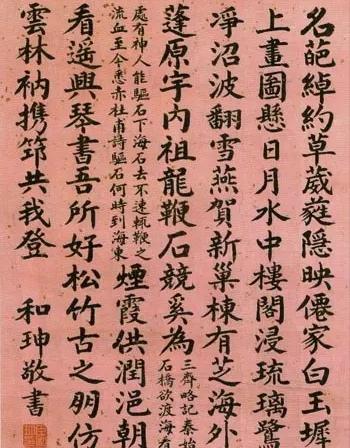 名葩綽約草葳蕤隱映僊家白玉墀
上畫圖懸日月水中樓閣浸琉璃鷺
淨沼波翻雪燕賀新巢棟有芝海外
蓬原宇内祖龍鞭石競奚為
三齊略記秦始
石橋欲渡海看
處有神人能驅石下海石去不速輒鞭之
流血至今悉赤杜甫詩驅石何時到海東
煙霞供潤浥朝
看遥興琴書吾所好松竹古之朋仿
雲林衲携筇共我登 和珅敬書